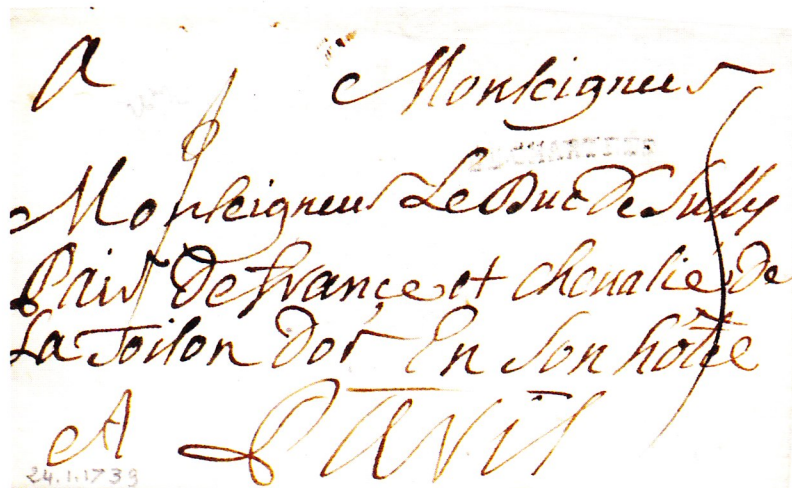 A Monseigneur
Monseigneur Le Duc De Sully
Pair De france et chevalié de
La Toilon Dor En son hôtée
A Paris
24.1.1739